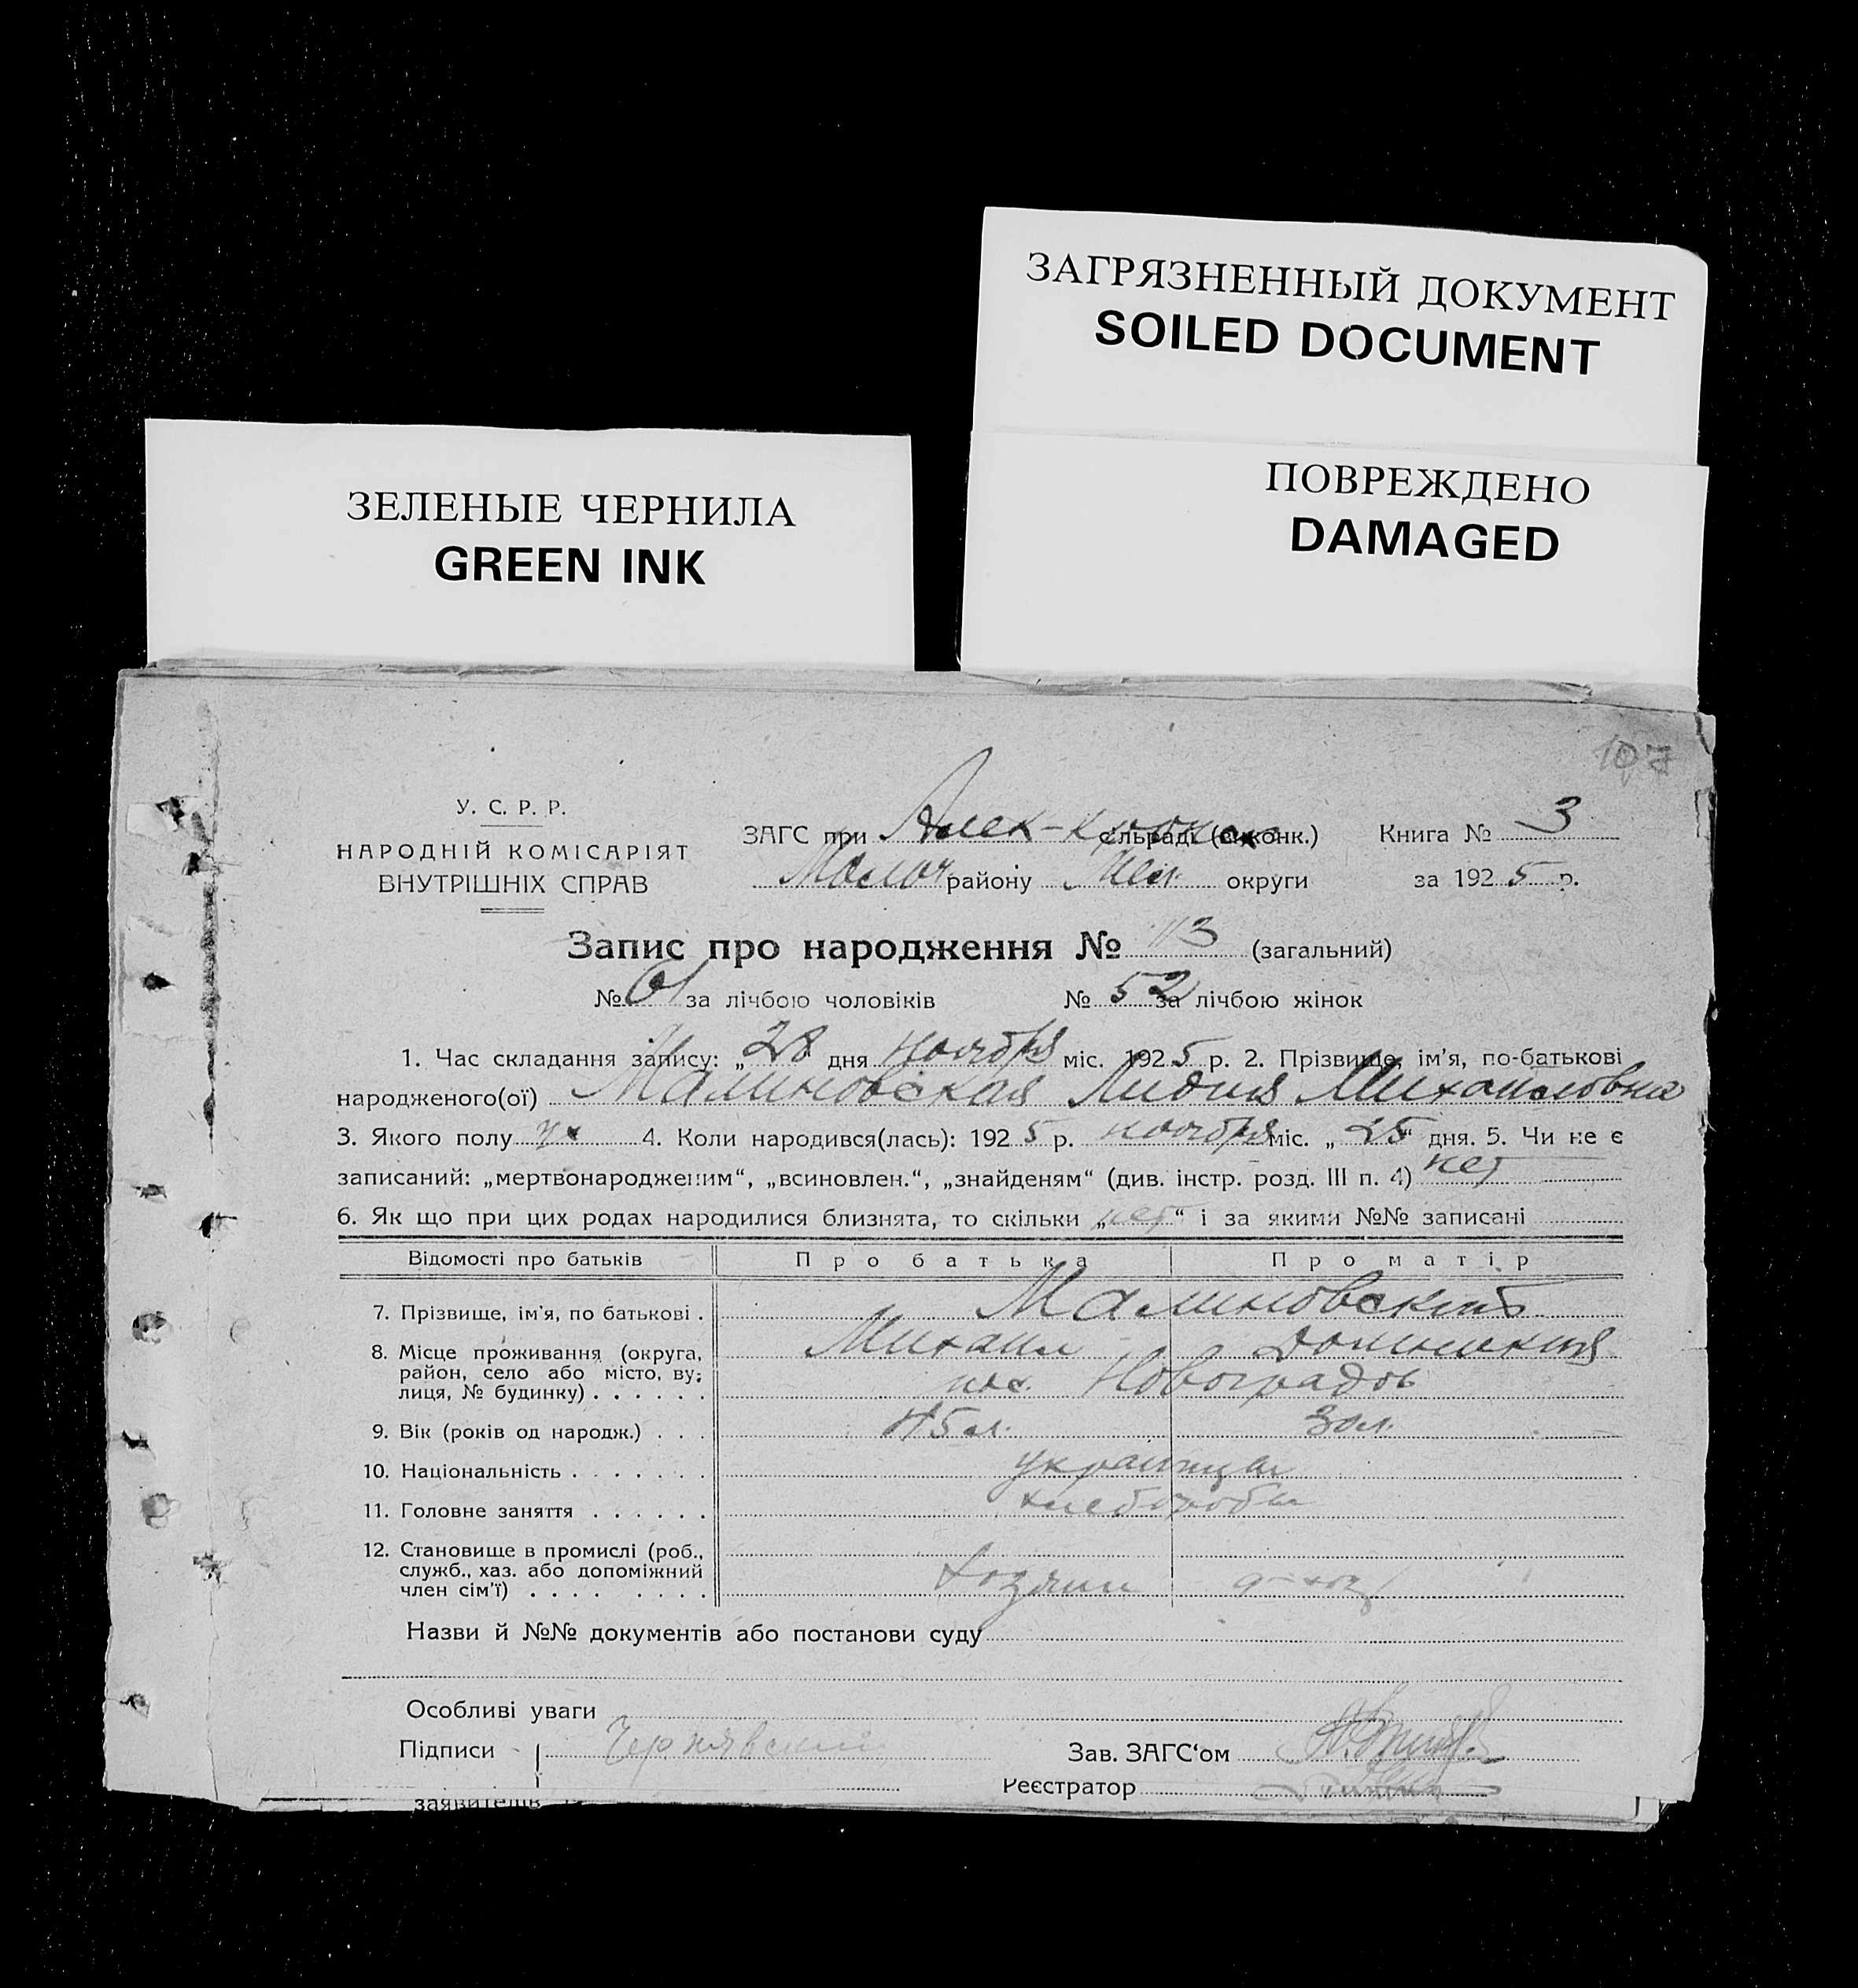 ЗАГРЯЗНЕННЫЙ ДОКУМЕНТ
SOILED DOCUMENT
ПОВРЕЖДЕНО
DAMAGED
ЗЕЛЕНЫЕ ЧЕРНИЛА
GREEN INK
107
У. С. Р. Р.
НАРОДНІЙ КОМІСАРІЯТ
ВНУТРІШНІХ СПРАВ
ЗАГС при Алек- сільраді (виконк.) Книга № 3
Молоч району Мел. округи за 1925 р.
Запис про народження № 113 (загальний)
№ 61 за лічбою чоловіків № 52 за лічбою жінок
1. Час складання запису: „28“ дня ноября міс. 1925 р. 2. Прізвище, ім'я, по-батькові
народженого(ої) Малиновская Лидия Михайловна
3. Якого полу ж 4. Коли народився(лась): 1925 р. ноября міс. „25“ дня. 5. Чи не є
записаний: „мертвонародженим“, „всиновлен.“, „знайденям“ (див. інстр. розд. III п. 4) нет
6. Як що при цих родах народилися близнята, то скільки „нет“ і за якими №№ записані
Відомості про батьків Про батька Про матір
7. Прізвище, ім'я, по батькові . Малиновский
8. Місце проживання (округа, Михаил
район, село або місто, ву-
лиця, № будинку) . . . . . . пос. Новоградов
9. Вік (років од народж.) . . . 45 л. 30 л.
10. Національність . . . . . . . украинцы
11. Головне заняття . . . . . . хлеборобы
12. Становище в промислі (роб.,
служб., хаз. або допоміжний
член сім'ї) . . . . . . . . Хозяин
Назви й №№ документів або постанови суду
Особливі уваги
Підписи Чернявский Зав. ЗАГС'ом
Реєстратор
заявителів